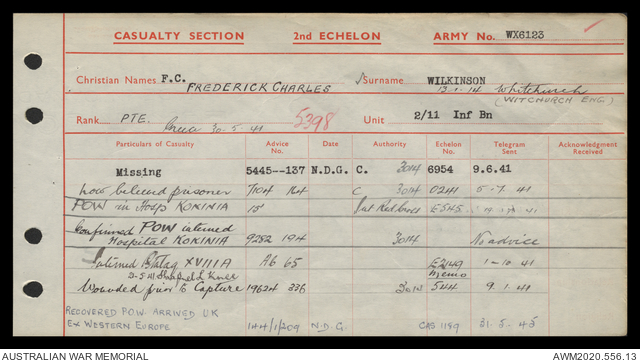 CASUALTY SECTION 2ND ECHELON ARMY No. WX6123
Christian Names F.C. FREDERICK CHARLES Surname WILKINSON
13.1.14 Whitchurch
(WITCHURCH ENG)
Rank PTE. 30.5.41 5398 Unit 2/11 Inf Bn
Particulars of Casualty Advice No. Date Authority Echelon No. Telegram Sent Acknowledgment Received
Missing 5445--137 N.D.G. C. 3014 6954 9.6.41
now believed prisoner 7104 164 C 3014 0241 5.7.41
POW in Hosp KOKINIA 15 Red Cross E545 41
Confirmed POW interned
Hospital KOKINIA 9282 194 3014 No advice
Interned Stalag XVIIIA A6 65 E2149 1-10 41
Memo
Wounded prior to Capture 19624 336 3014 544 9.1.41
RECOVERED POW ARRIVED UK
Ex WESTERN EUROPE 144/1/209 N.D.G. CAS 1189 31.5.45
AUSTRALIAN WAR MEMORIAL AWM2020.556.13